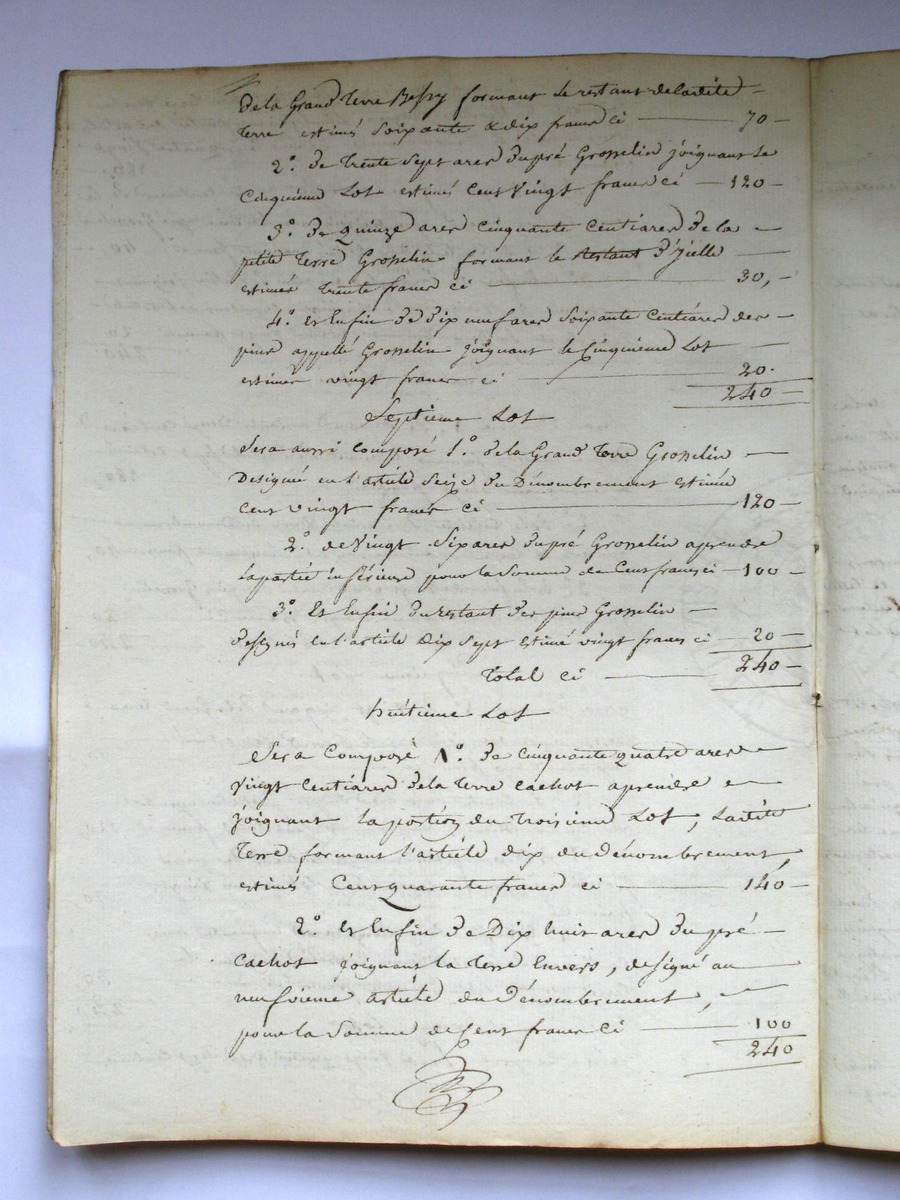 De la Grand Terre Bessy formant le restant de ladite
Terre estimés Soixante & dix francs ci — 70 —
2.° De Trente Sept ares du pré Grosselin joignant le
Cinquieme Lot estimés Cent Vingt francs ci — 120 —
3.° De Quinze ares cinquante Centiares de la
petite Terre Grosselin formant le Restant d'yielle
estimés Trente francs ci — 30, —
4.° et Enfin De dix neuf ares Soixante Centiares des
pins appellé Grosselin joignant le Cinquieme Lot
estimés vingt francs ci — 20.
240 —
Septieme Lot
Sera aussi composé 1.° de la Grand Terre Grosselin
Designée en l'article Seize du Dénombrement estimée
Cent vingt francs ci — 120 —
2.° de Vingt Six ares du pré Grosselin aprendre
la partie inférieure pour la Somme de Cent francs ci — 100 —
3.° Et Enfin du restant des pins Grosselin —
designés en l'article dix Sept estimé vingt francs ci — 20 —
Total ci — 240 —
huitieme Lot
Sera Composé 1.° De Cinquante quatre ares
Vingt Centiares de la Terre Cachot aprendre
joignant la portion du Troisieme Lot, Ladite
Terre formant l'article dix du Dénombrement,
estimés Cent quarante francs ci — 140 —
2.° et Enfin De Dix huit ares du pré —
Cachot joignant la Terre Envers, designé au
neufvieme article du Dénombrement, —
pour la Somme de Cent francs Ci — 100
240